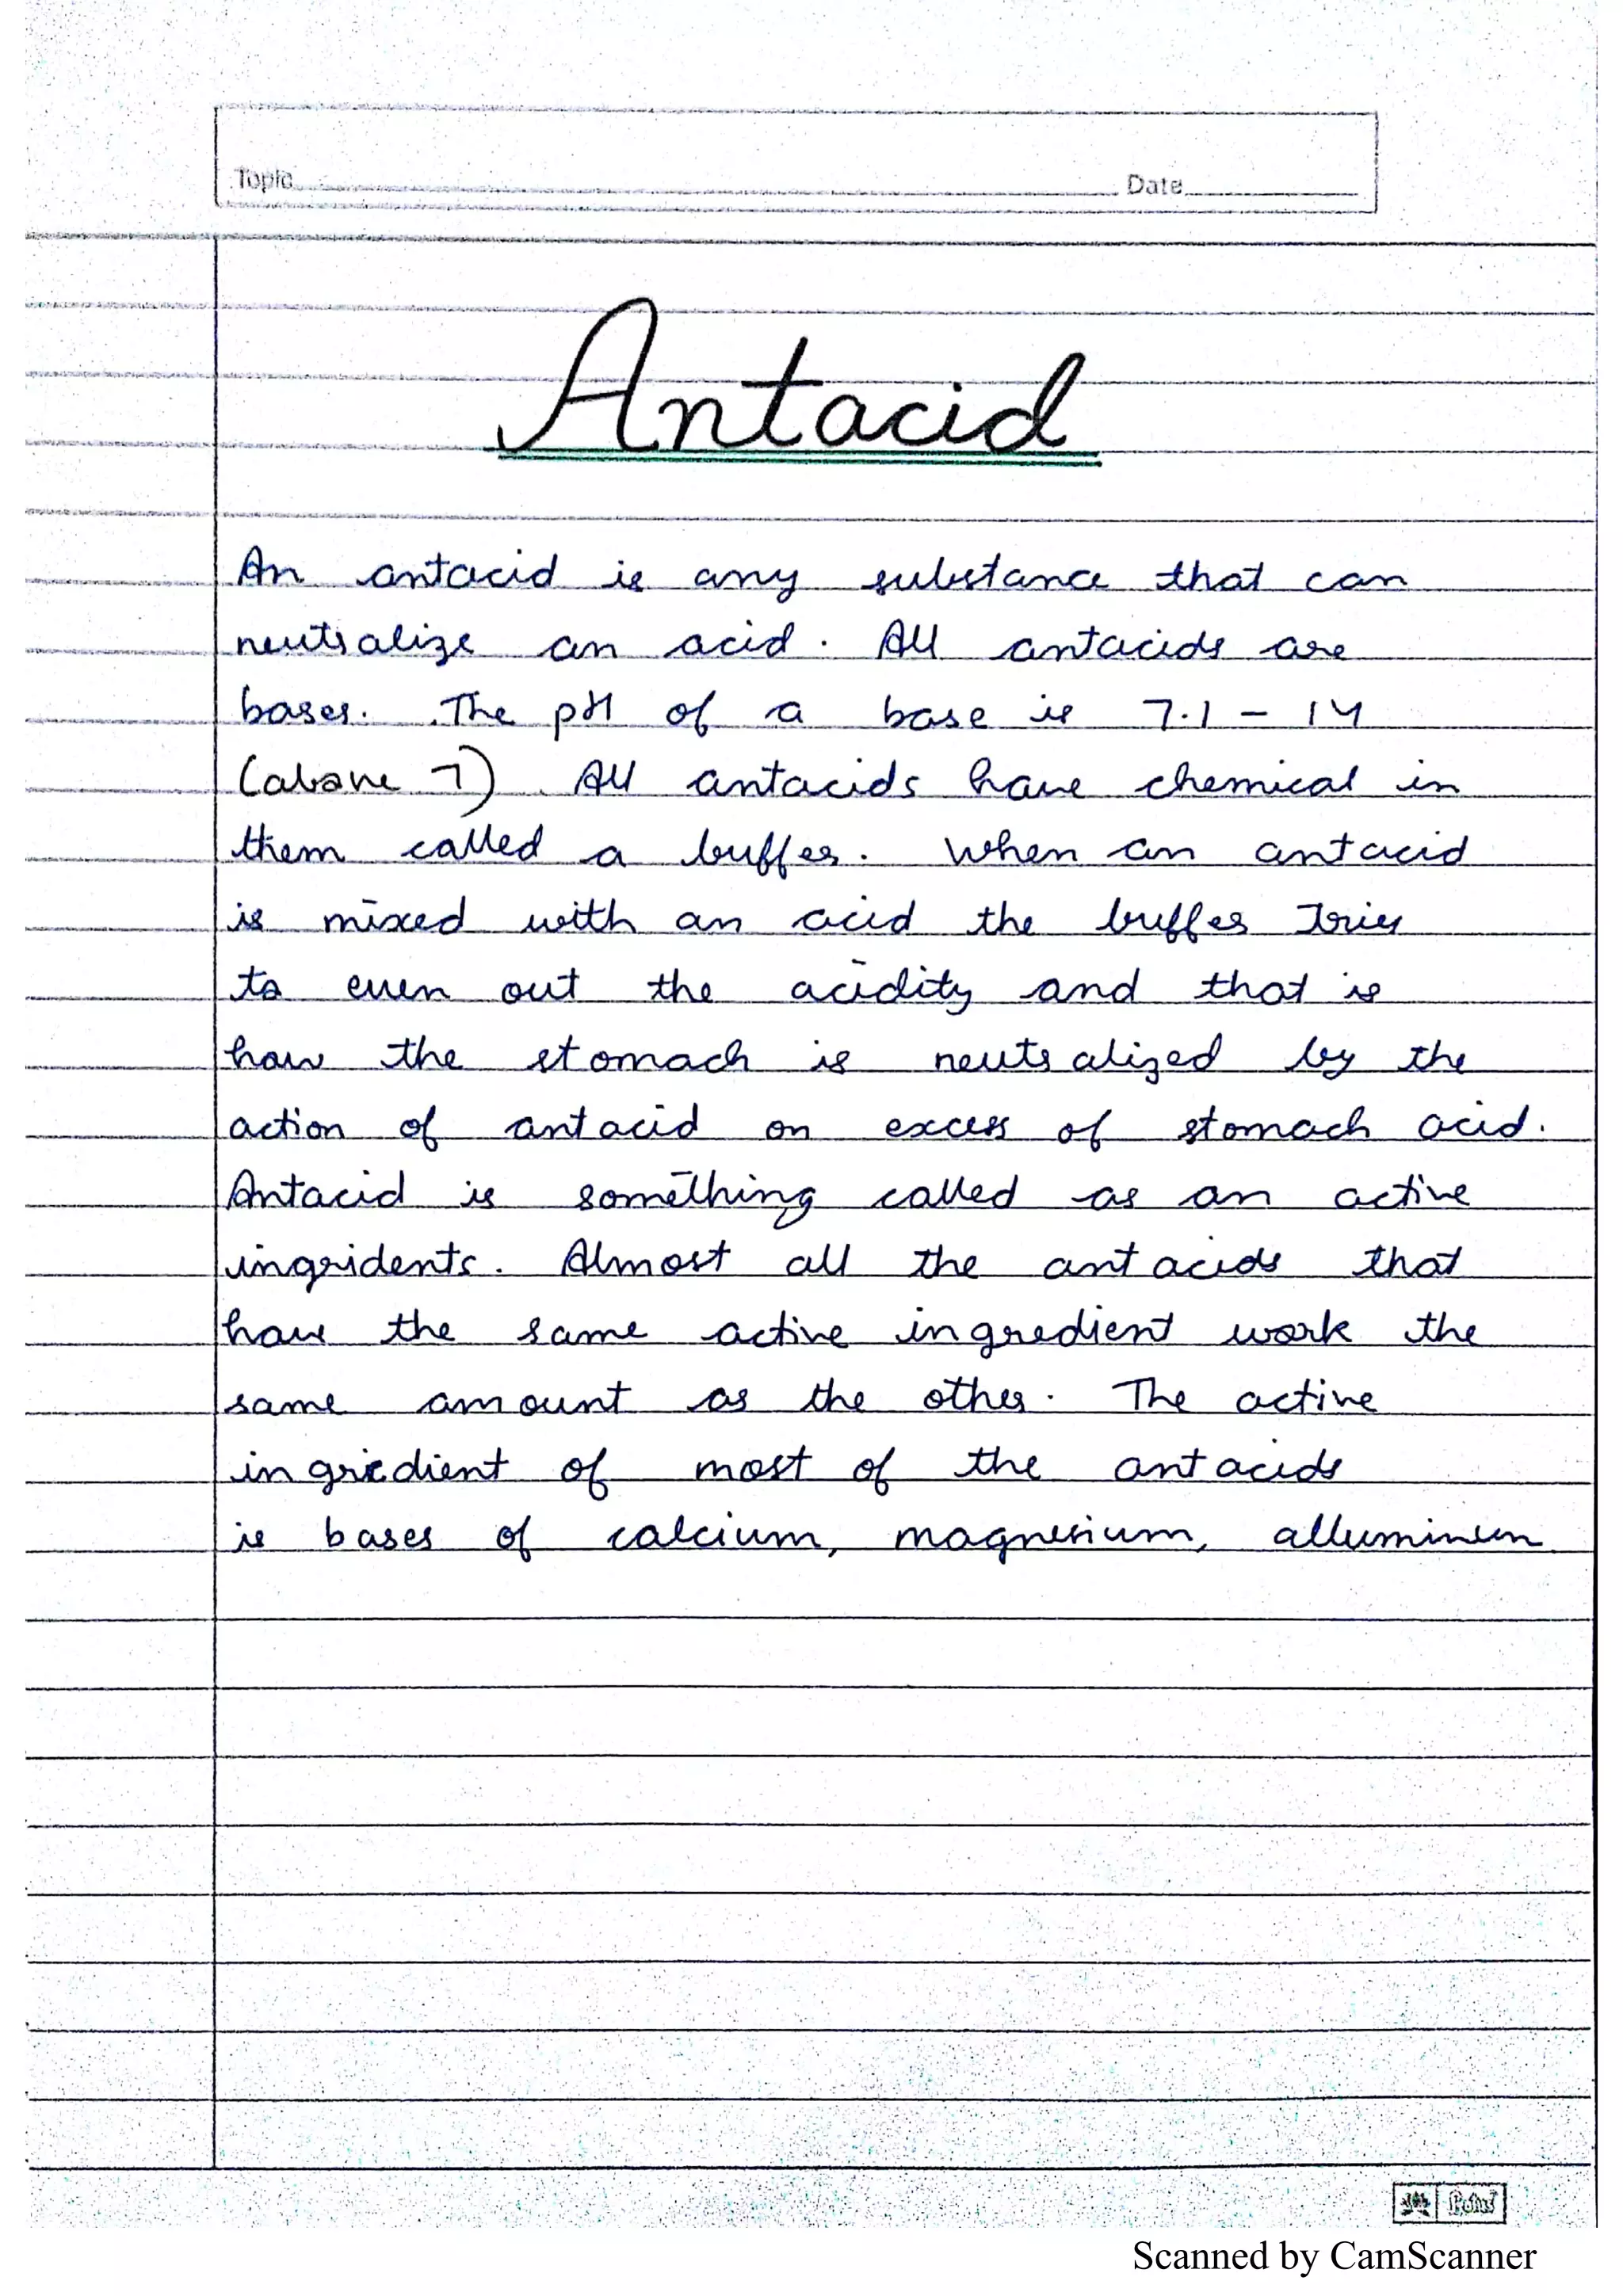 Topic Date
Antacid
An antacid is any substance that can
neutralize an acid. All antacids are
bases. The pH of a base is 7.1 - 14
(above 7). All antacids have chemical in
them called a buffer. When an antacid
is mixed with an acid the buffer tries
to even out the acidity and that is
how the stomach is neutralized by the
action of antacid on excess of stomach acid.
Antacid is something called as an active
ingridents. Almost all the antacids that
have the same active ingredient work the
same amount as the other. The active
ingredient of most of the antacids
is bases of calcium, magnesium, alluminium
Scanned by CamScanner